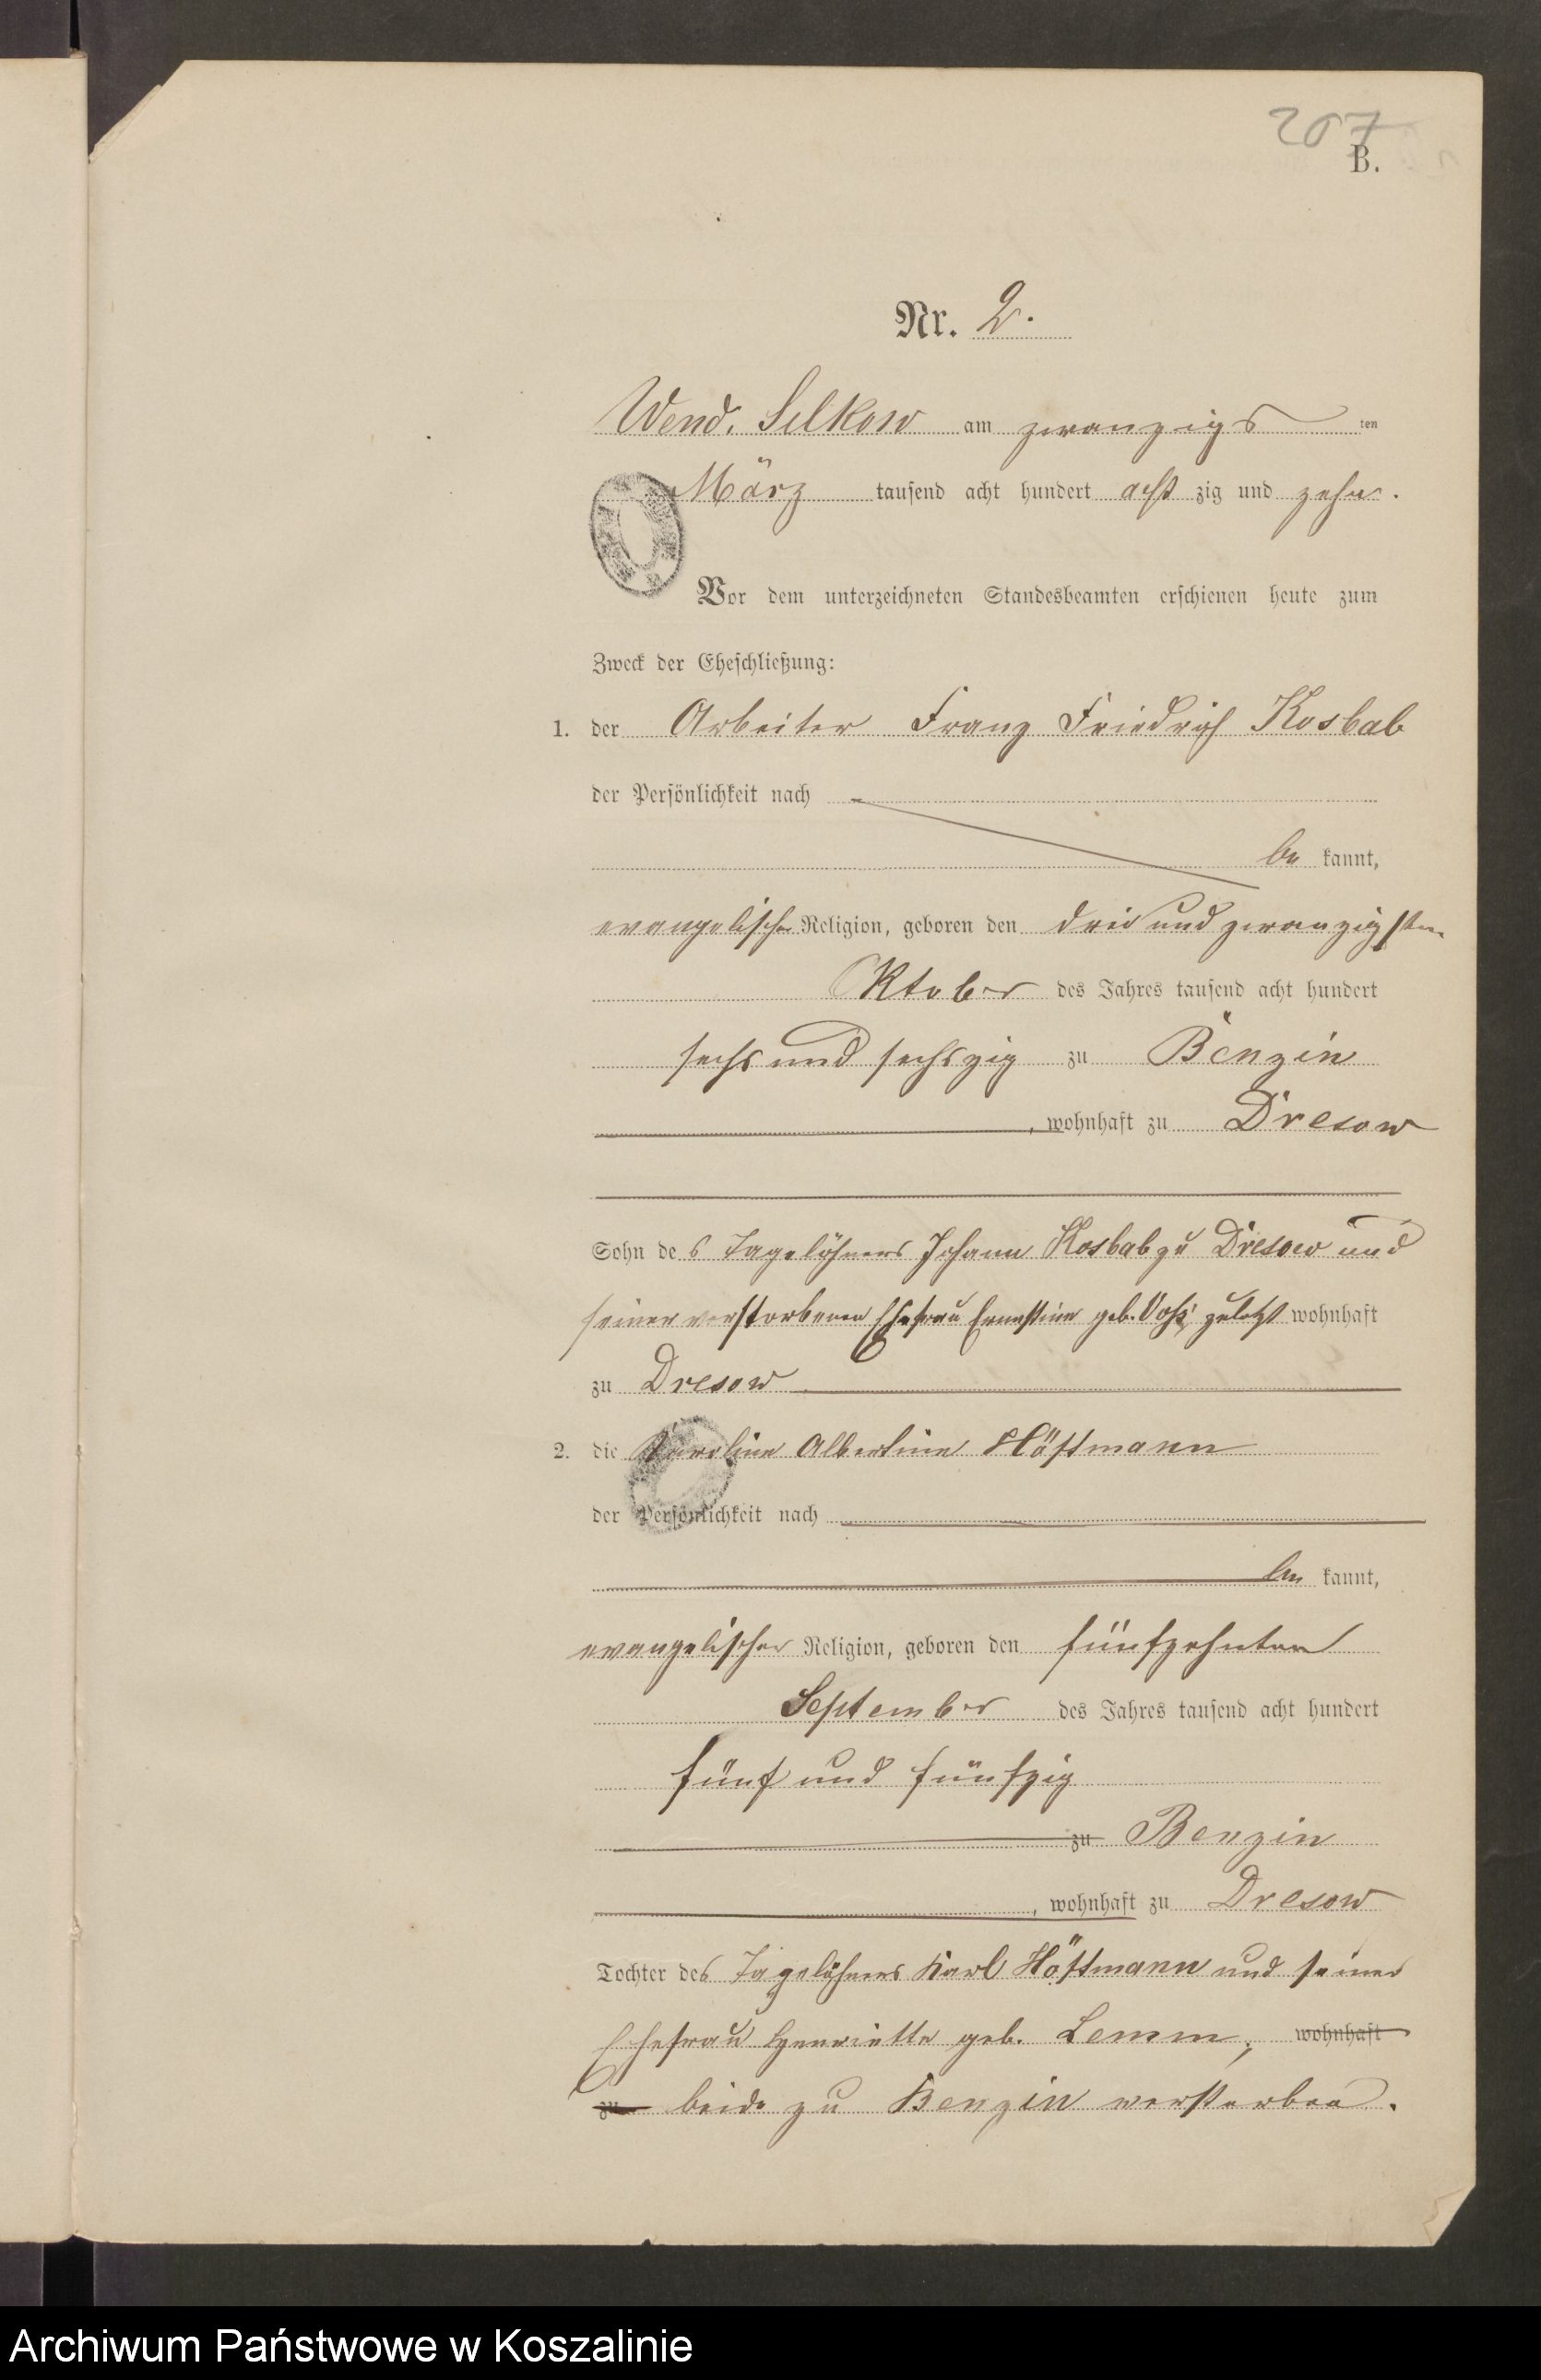 207
B.
Nr. 2.
Wend. Silkow am zwanzigs ten
März tausend acht hundert acht zig und zehn.
Vor dem unterzeichneten Standesbeamten erschienen heute zum
Zweck der Eheschließung:
1. der Arbeiter Franz Friedrich Kosbab
der Persönlichkeit nach
be kannt,
evangelischer Religion, geboren den drei und zwanzigsten
Oktober des Jahres tausend acht hundert
sechs und sechszig zu Benzin
, wohnhaft zu Dresow
Sohn des Tagelöhners Johann Kosbab zu Dresow und
seiner verstorbenen Ehefrau Ernestine geb. Voß, zuletzt wohnhaft
zu Dresow
2. die Karoline Albertine Höftmann
der Persönlichkeit nach
be kannt,
evangelischer Religion, geboren den fünfzehnten
September des Jahres tausend acht hundert
fünf und fünfzig
zu Benzin
, wohnhaft zu Dresow
Tochter des Tagelöhners Karl Höftmann und seiner
Ehefrau Henriette geb. Lemm, wohnhaft
zu beide zu Benzin verstorben.
Archiwum Państwowe w Koszalinie